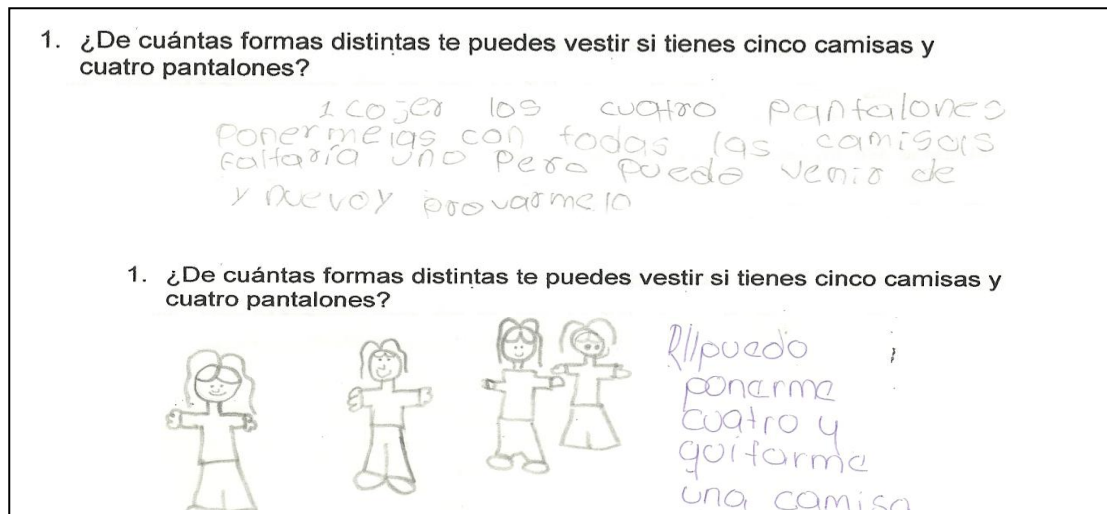 1. ¿De cuántas formas distintas te puedes vestir si tienes cinco camisas y
cuatro pantalones?
1 cojer los cuatro pantalones
ponermeias con todas las camisas
faltaria uno pero puedo venir de
y nuevoy provarmelo
1. ¿De cuántas formas distintas te puedes vestir si tienes cinco camisas y
cuatro pantalones?
R// puedo
ponerme
cuatro y
quitarme
una camisa